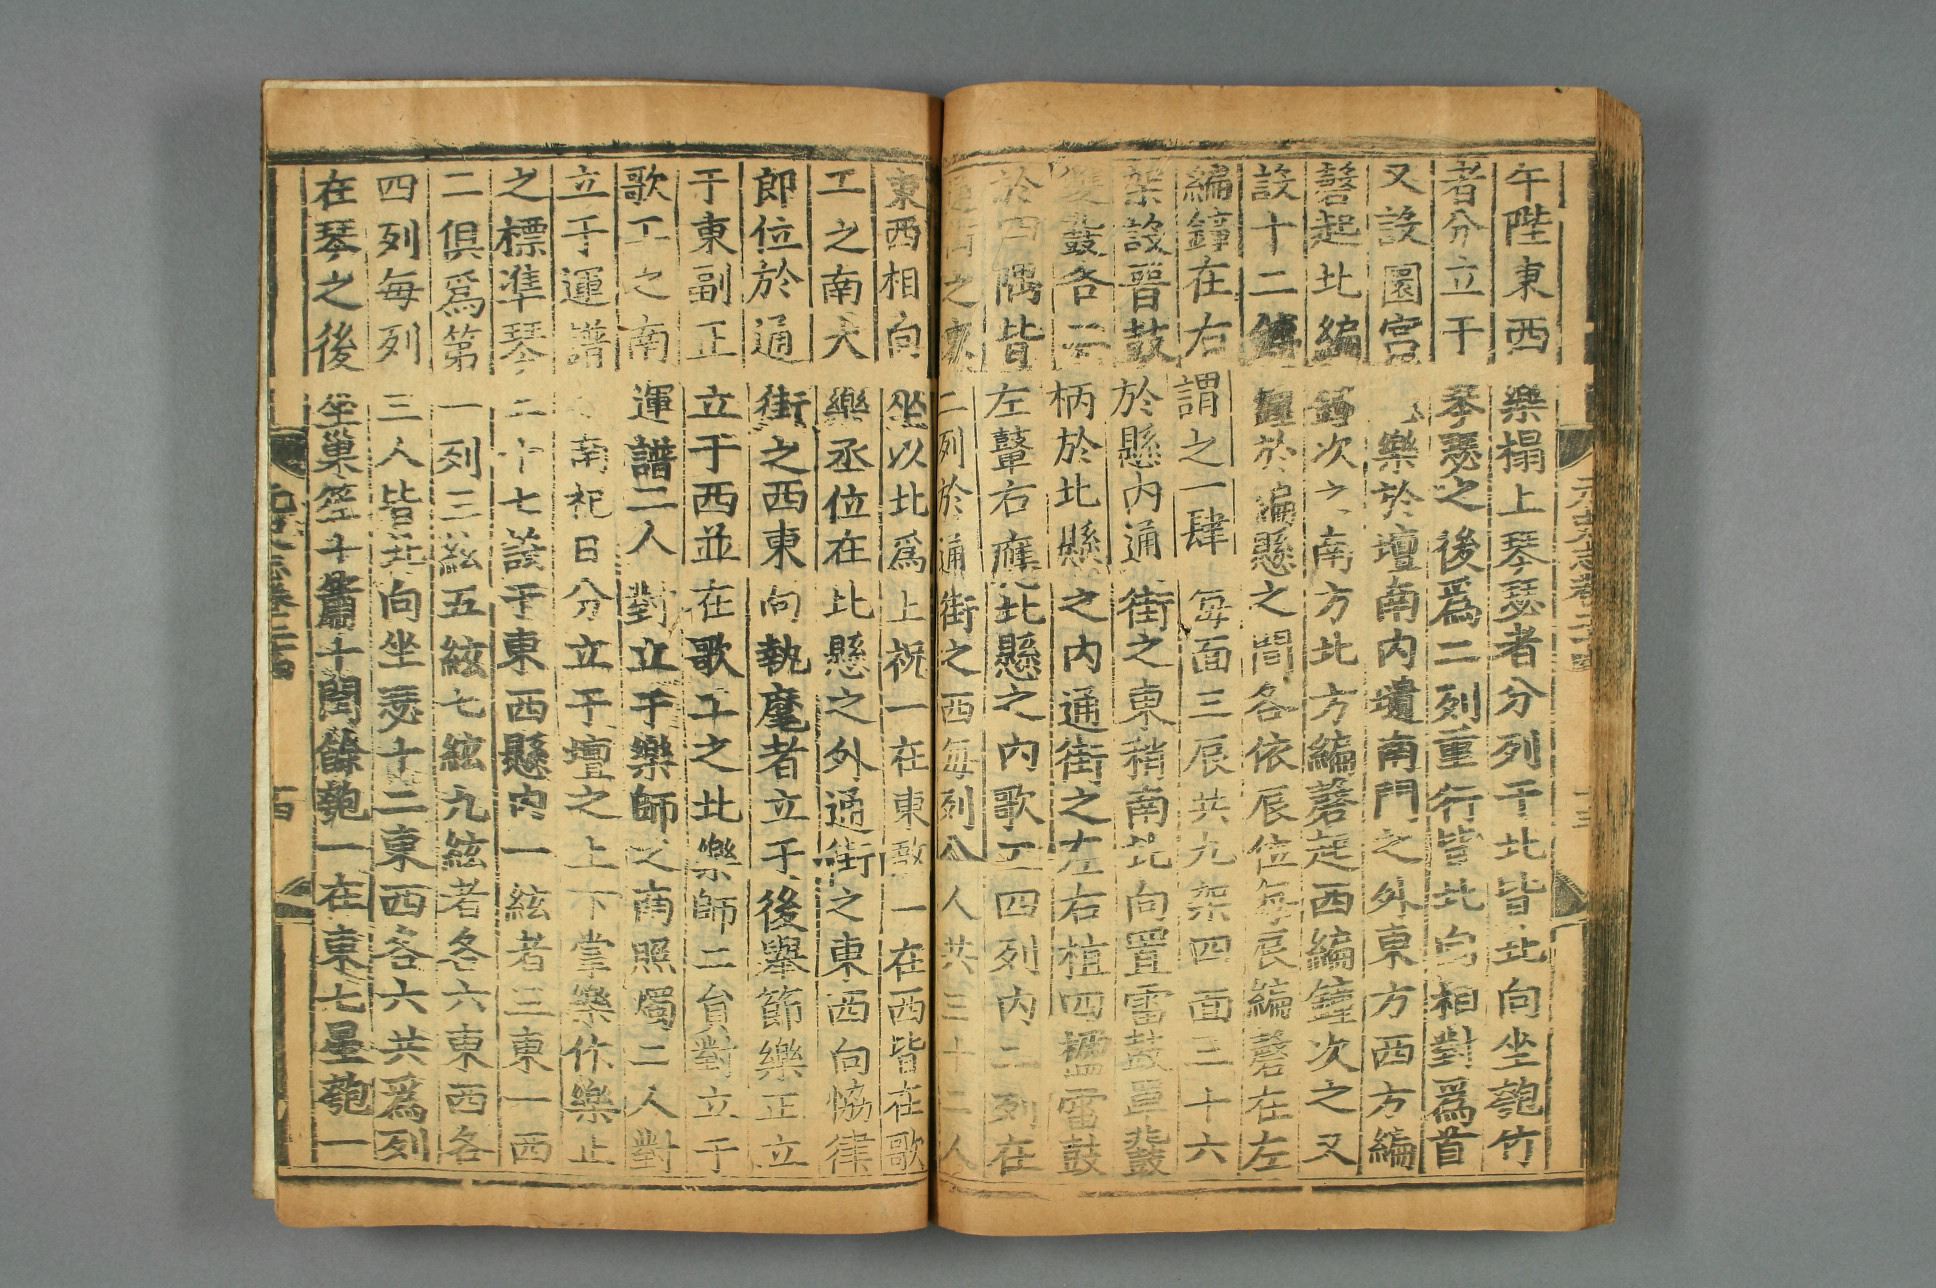 午陛東西樂榻上琴瑟者分列于北皆北向坐匏竹
者分立于琴瑟之後爲二列重行皆北向相對爲首
又設圜宮樂於壇南內壝南門之外東方西方編
磬起北編次之南方北方編磬起西編鐘次之又
設十二鎛於編懸之間各依辰位每辰編磬在左
編鐘在右謂之一肆每面三辰共九架四面三十六
架設晉鼓於懸內通街之東稍南北向置雷鼓單鼗
雙鼗各二柄於北懸之內通街之左右植四楹雷鼓
於四隅皆左鼙右應北懸之內歌工四列內二列在
通街之東二列於通街之西每列八人共三十二人
東西相向坐以北爲上祝一在東敔一在西皆在歌
工之南大樂丞位在北懸之外通街之東西向恊律
郎位於通街之西東向執麾者立于後舉節樂正立
于東副正立于西並在歌工之北樂師二員對立于
歌工之南運譜二人對立于樂師之南照燭二人對
立于運譜南祀日分立于壇之上下掌樂作樂止
之標準琴二十七設于東西懸內一絃者三東一西
二俱爲第一列三絃五絃七絃九絃者各六東西各
四列每列三人皆北向坐瑟十二東西各六共爲列
在琴之後坐巢笙十簫十閏餘匏一在東七星匏一
元史志卷二十四
十四